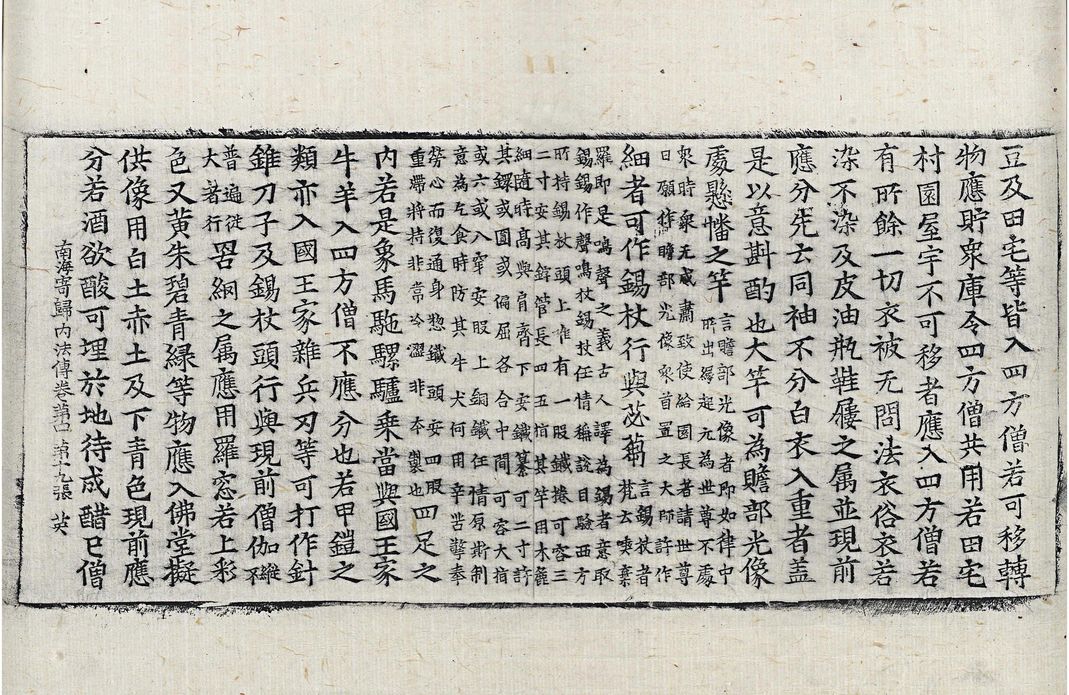 豆及田宅等皆入四方僧若可移轉
物應貯衆庫令四方僧共用若田宅
村園屋宇不可移者應入四方僧若
有所餘一切衣被无問法衣俗衣若
染不染及皮油瓶鞋屨之属並現前
應分先云同袖不分白衣入重者盖
是以意斟酌也大竿可為贍部光像
處懸幡之竿言贍部光像者即如律中所出緣起元為世尊不處
衆時衆无威肅致使給園長者請世尊
曰願作贍部光像衆首置之大師許作
細者可作錫杖行與苾蒭言錫杖者梵云喫棄
羅即是鳴聲之義古人譯為錫者意取
錫錫作聲鳴杖錫杖任情稱說目驗西方
所持錫杖頭上唯有一股鐵捲可容三
二寸安其錍管長四五指其竿用木麁
細隨時高與肩齊下安鐵纂可二寸許
其鐶或圓或偏屈各合中間可容大指
或六或八穿安股上銅鐵任情原斯制
意為乞食時防其牛犬何用辛苦擎奉
勞心而復通身惣鐵頭安四股重滯將持非常冷澀非本製也四足之
内若是象馬馳騾驢乘當與國王家
牛羊入四方僧不應分也若甲鎧之
類亦入國王家雜兵刃等可打作針
錐刀子及錫杖頭行與現前僧伽縱不
普遍從大者行罟網之属應用羅窓若上彩
色又黄朱碧青緑等物應入佛堂擬
供像用白土赤土及下青色現前應
分若酒欲酸可埋於地待成醋已僧
南海寄歸内法傳卷第四 第十九張 英